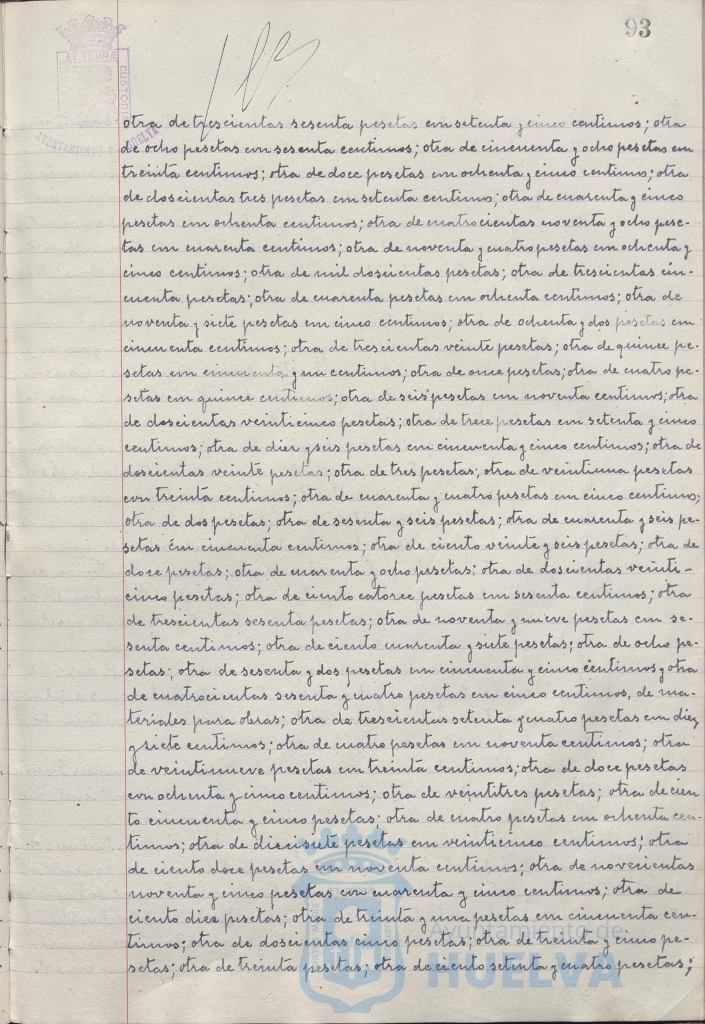 93
ET TERRÆ
CUSTODI
AYUNTAMIENTO HUELVA
otra de trescientas sesenta pesetas con setenta y cinco centimos; otra
de ocho pesetas con sesenta centimos; otra de cincuenta y ocho pesetas con
treinta centimos; otra de doce pesetas con ochenta y cinco centimo; otra
de doscientas tres pesetas con setenta centimo; otra de cuarenta y cinco
pesetas con ochenta centimos; otra de cuatrocientas noventa y ocho pese-
tas con cuarenta centimos; otra de noventa y cuatro pesetas con ochenta y
cinco centimos; otra de mil doscientas pesetas; otra de trescientas cin-
cuenta pesetas; otra de cuarenta pesetas con ochenta centimos; otra de
noventa y siete pesetas con cinco centimos; otra de ochenta y dos pesetas con
cincuenta centimos; otra de trescientas veinte pesetas; otra de quince pe-
setas con cincuenta y un centimos; otra de once pesetas; otra de cuatro pe-
setas con quince centimos; otra de seis pesetas con noventa centimos; otra
de doscientas veinticinco pesetas; otra de trece pesetas con setenta y cinco
centimos; otra de diez y seis pesetas con cincuenta y cinco centimos; otra de
doscientas veinte pesetas; otra de tres pesetas; otra de veintiuna pesetas
con treinta centimos; otra de cuarenta y cuatro pesetas con cinco centimo;
otra de dos pesetas; otra de sesenta y seis pesetas; otra de cuarenta y seis pe-
setas con cincuenta centimos; otra de ciento veinte y seis pesetas; otra de
doce pesetas; otra de cuarenta y ocho pesetas; otra de doscientas veinti-
cinco pesetas; otra de ciento catorce pesetas con sesenta centimos; otra
de trescientas sesenta pesetas; otra de noventa y nueve pesetas con se-
senta centimos; otra de ciento cuarenta y siete pesetas; otra de ocho pe-
setas; otra de sesenta y dos pesetas con cincuenta y cinco centimos y otra
de cuatrocientas sesenta y cuatro pesetas con cinco centimos, de ma-
teriales para obras; otra de trescientas setenta y cuatro pesetas con diez
y siete centimos; otra de cuatro pesetas con noventa centimos; otra
de veintinueve pesetas con treinta centimos; otra de doce pesetas
con ochenta y cinco centimos; otra de veintitres pesetas; otra de cien
to cincuenta y cinco pesetas; otra de cuatro pesetas con ochenta cen-
timos; otra de diecisiete pesetas con veinticinco centimos; otra
de ciento doce pesetas con noventa centimos; otra de novecientas
noventa y cinco pesetas con cuarenta y cinco centimos; otra de
ciento diez pesetas; otra de treinta y una pesetas con cincuenta cen-
timos; otra de doscientas cinco pesetas; otra de treinta y cinco pe-
setas; otra de treinta pesetas; otra de ciento setenta y cuatro pesetas;
Ayuntamiento de
HUELVA